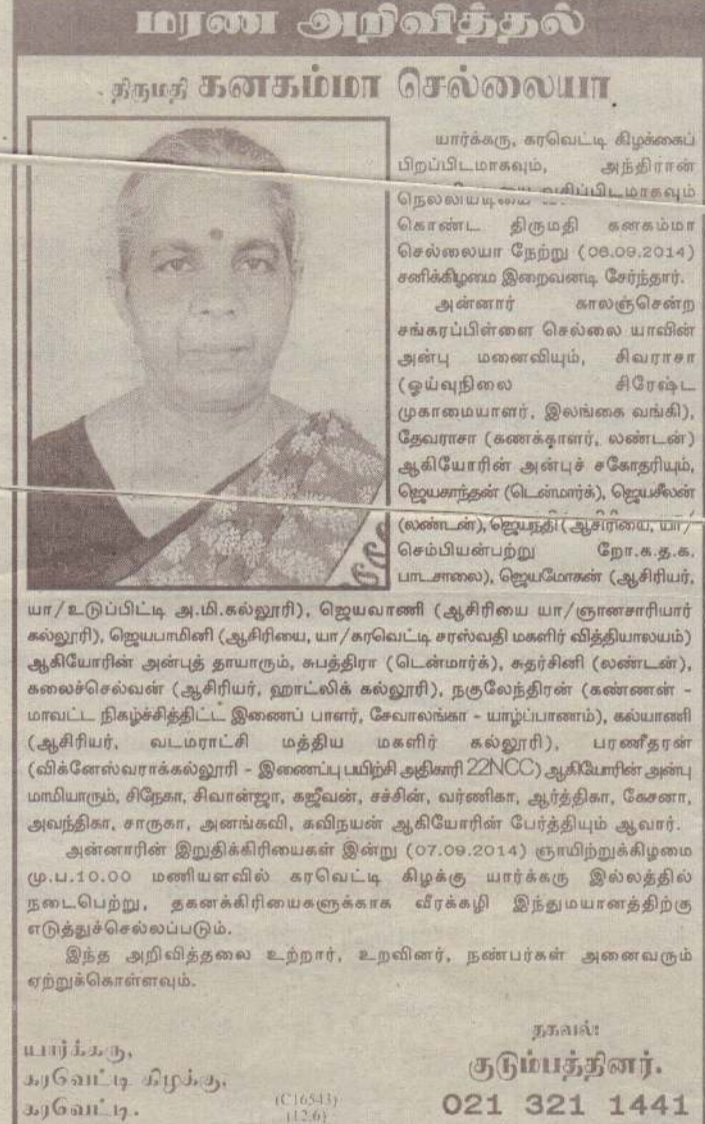 மரண அறிவித்தல்
திருமதி கனகம்மா செல்லையா
யார்க்கரு, கரவெட்டி கிழக்கைப்
பிறப்பிடமாகவும், அந்திரான்
நெல்லியடியை வசிப்பிடமாகவும்
கொண்ட திருமதி கனகம்மா
செல்லையா நேற்று (06.09.2014)
சனிக்கிழமை இறைவனடி சேர்ந்தார்.
அன்னார் காலஞ்சென்ற
சங்கரப்பிள்ளை செல்லை யாவின்
அன்பு மனைவியும், சிவராசா
(ஓய்வுநிலை சிரேஷ்ட
முகாமையாளர், இலங்கை வங்கி),
தேவராசா (கணக்காளர், லண்டன்)
ஆகியோரின் அன்புச் சகோதரியும்,
ஜெயகாந்தன் (டென்மார்க்), ஜெயசீலன்
(லண்டன்), ஜெயநதி (ஆசிரியை, யா/
செம்பியன்பற்று றோ.க.த.க.
பாடசாலை), ஜெயமோகன் (ஆசிரியர்,
யா/உடுப்பிட்டி அ.மி.கல்லூரி), ஜெயவாணி (ஆசிரியை யா/ஞானசாரியார்
கல்லூரி), ஜெயபாமினி (ஆசிரியை, யா/கரவெட்டி சரஸ்வதி மகளிர் வித்தியாலயம்)
ஆகியோரின் அன்புத் தாயாரும், சுபத்திரா (டென்மார்க்), சுதர்சினி (லண்டன்),
கலைச்செல்வன் (ஆசிரியர், ஹாட்லிக் கல்லூரி), நகுலேந்திரன் (கண்ணன் -
மாவட்ட நிகழ்ச்சித்திட்ட இணைப் பாளர், சேவாலங்கா - யாழ்ப்பாணம்), கல்யாணி
(ஆசிரியர், வடமராட்சி மத்திய மகளிர் கல்லூரி), பரணீதரன்
(விக்னேஸ்வராக்கல்லூரி - இணைப்பு பயிற்சி அதிகாரி 22NCC) ஆகியோரின் அன்பு
மாமியாரும், சிநேகா, சிவான்ஜா, கஜீவன், சச்சின், வர்ணிகா, ஆர்த்திகா, கேசனா,
அவந்திகா, சாருகா, அனங்கவி, கவிநயன் ஆகியோரின் பேர்த்தியும் ஆவார்.
அன்னாரின் இறுதிக்கிரியைகள் இன்று (07.09.2014) ஞாயிற்றுக்கிழமை
மு.ப.10.00 மணியளவில் கரவெட்டி கிழக்கு யார்க்கரு இல்லத்தில்
நடைபெற்று, தகனக்கிரியைகளுக்காக வீரக்கழி இந்துமயானத்திற்கு
எடுத்துச்செல்லப்படும்.
இந்த அறிவித்தலை உற்றார், உறவினர், நண்பர்கள் அனைவரும்
ஏற்றுக்கொள்ளவும்.
யார்க்கரு,
கரவெட்டி கிழக்கு,
கரவெட்டி.
(C16543)
(12.6)
தகவல்:
குடும்பத்தினர்.
021 321 1441